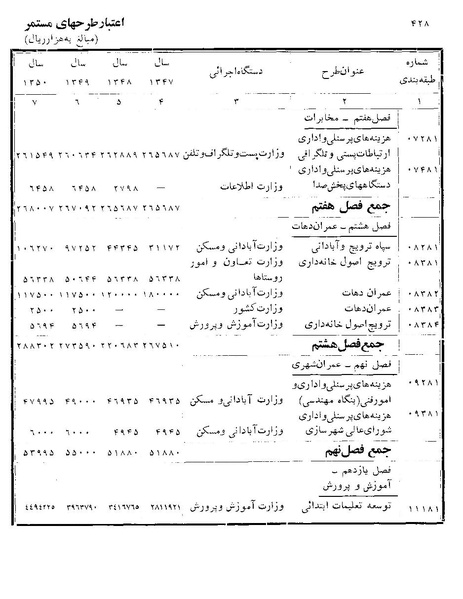 ۴۲۸
اعتبار طرحهای مستمر
(مبالغ به هزار ریال)
شماره طبقه‌بندی عنوان طرح دستگاه اجرائی سال ۱۳۴۷ سال ۱۳۴۸ سال ۱۳۴۹ سال ۱۳۵۰
۱ ۲ ۳ ۴ ۵ ۶ ۷
فصل هفتم – مخابرات
۰۷۲۸۱ هزینه‌های پرسنلی و اداری
ارتباطات پستی و تلگرافی وزارت پست و تلگراف و تلفن ۲۶۵۶۸۷ ۲۶۲۸۸۹ ۲۶۰۶۳۴ ۲۶۱۵۴۹
۰۷۴۸۱ هزینه‌های پرسنلی و اداری
دستگاههای پخش صدا وزارت اطلاعات — ۲۷۹۸ ۶۴۵۸ ۶۴۵۸
جمع فصل هفتم ۲۶۵۶۸۷ ۲۶۵۶۸۷ ۲۶۷۰۹۲ ۲۶۸۰۰۷
فصل هشتم – عمران دهات
۰۸۲۸۱ سپاه ترویج و آبادانی وزارت آبادانی و مسکن ۳۱۱۷۲ ۴۴۳۴۵ ۹۷۲۵۲ ۱۰۶۲۷۰
۰۸۳۸۱ ترویج اصول خانه‌داری وزارت تعاون و امور
روستاها ۵۶۳۳۸ ۵۶۳۳۸ ۵۰۶۴۴ ۵۶۳۳۸
۰۸۳۸۲ عمران دهات وزارت آبادانی و مسکن ۱۸۰۰۰۰ ۱۲۰۰۰۰ ۱۱۷۵۰۰ ۱۱۷۵۰۰
۰۸۳۸۳ عمران دهات وزارت کشور — — ۲۵۰۰ ۲۵۰۰
۰۸۳۸۴ ترویج اصول خانه‌داری وزارت آموزش و پرورش — — ۵۶۹۴ ۵۶۹۴
جمع فصل هشتم ۲۶۷۵۱۰ ۲۲۰۶۸۳ ۲۷۳۵۹۰ ۲۸۸۳۰۲
فصل نهم – عمران شهری
۰۹۲۸۱ هزینه‌های پرسنلی و اداری و
امور فنی (بنگاه مهندسی) وزارت آبادانی و مسکن ۴۶۹۳۵ ۴۶۹۳۵ ۴۹۰۰۰ ۴۷۹۹۵
۰۹۳۸۱ هزینه‌های پرسنلی و اداری
شورای عالی شهرسازی وزارت آبادانی و مسکن ۴۹۴۵ ۴۹۴۵ ۶۰۰۰ ۶۰۰۰
جمع فصل نهم ۵۱۸۸۰ ۵۱۸۸۰ ۵۵۰۰۰ ۵۳۹۹۵
فصل یازدهم –
آموزش و پرورش
۱۱۱۸۱ توسعه تعلیمات ابتدائی وزارت آموزش و پرورش ۲۸۱۱۹۲۱ ۳۴۱۶۷۶۵ ۳۹۶۳۷۹۰ ۴۴۹۴۲۲۵